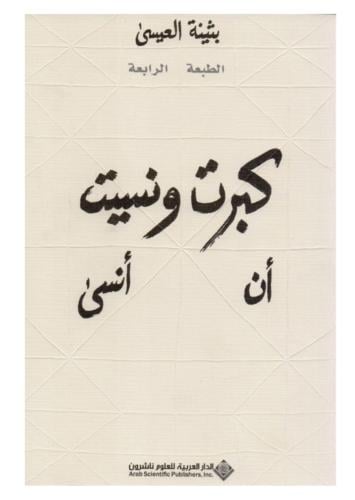 بثينة العيسى
الطبعة الرابعة
كبرت ونسيت
أن أنسى
الدار العربية للعلوم ناشرون
Arab Scientific Publishers, Inc.